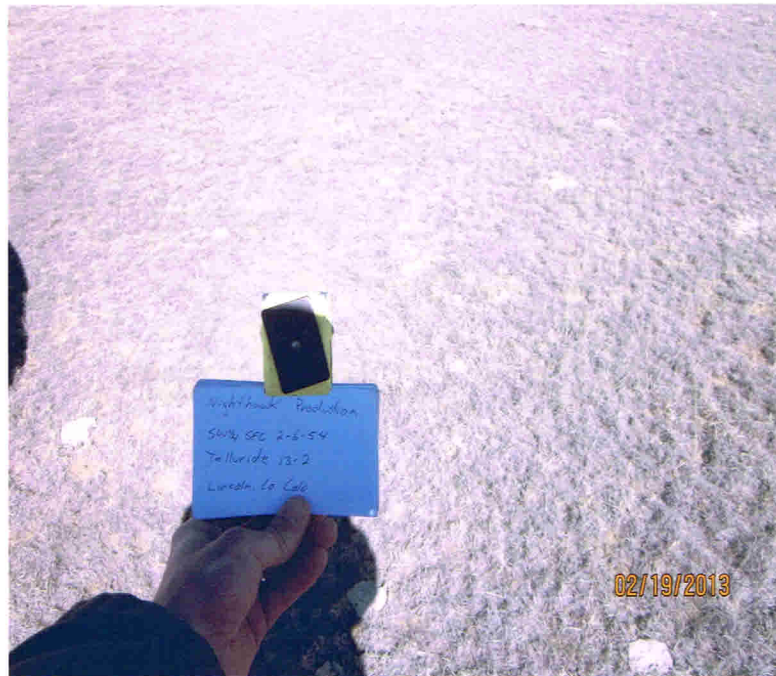 Nighthawk Production
SW¼ SEC 2-6-54
Telluride 13-2
Lincoln, Co Colo
02/19/2013